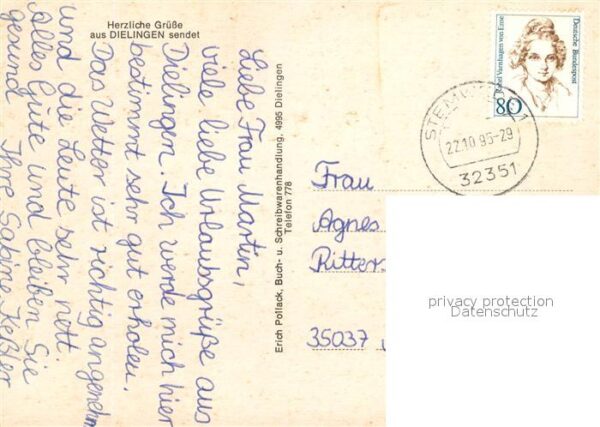 Herzliche Grüße
aus DIELINGEN sendet
Liebe Frau Martin,
viele liebe Urlaubsgrüße aus
Dielingen. Ich werde mich hier
bestimmt sehr gut erholen.
Das Wetter ist richtig angenehm
und die Leute sehr nett.
Alles Gute und bleiben Sie
gesund Ihre Sabine Keßler
Erich Pollack, Buch- u. Schreibwarenhandlung, 4995 Dielingen
Telefon 778
Rahel Varnhagen von Ense
Deutsche Bundespost
80
22.10.95-29
32351
Frau
Agnes
Ritter
35037
privacy protection
Datenschutz